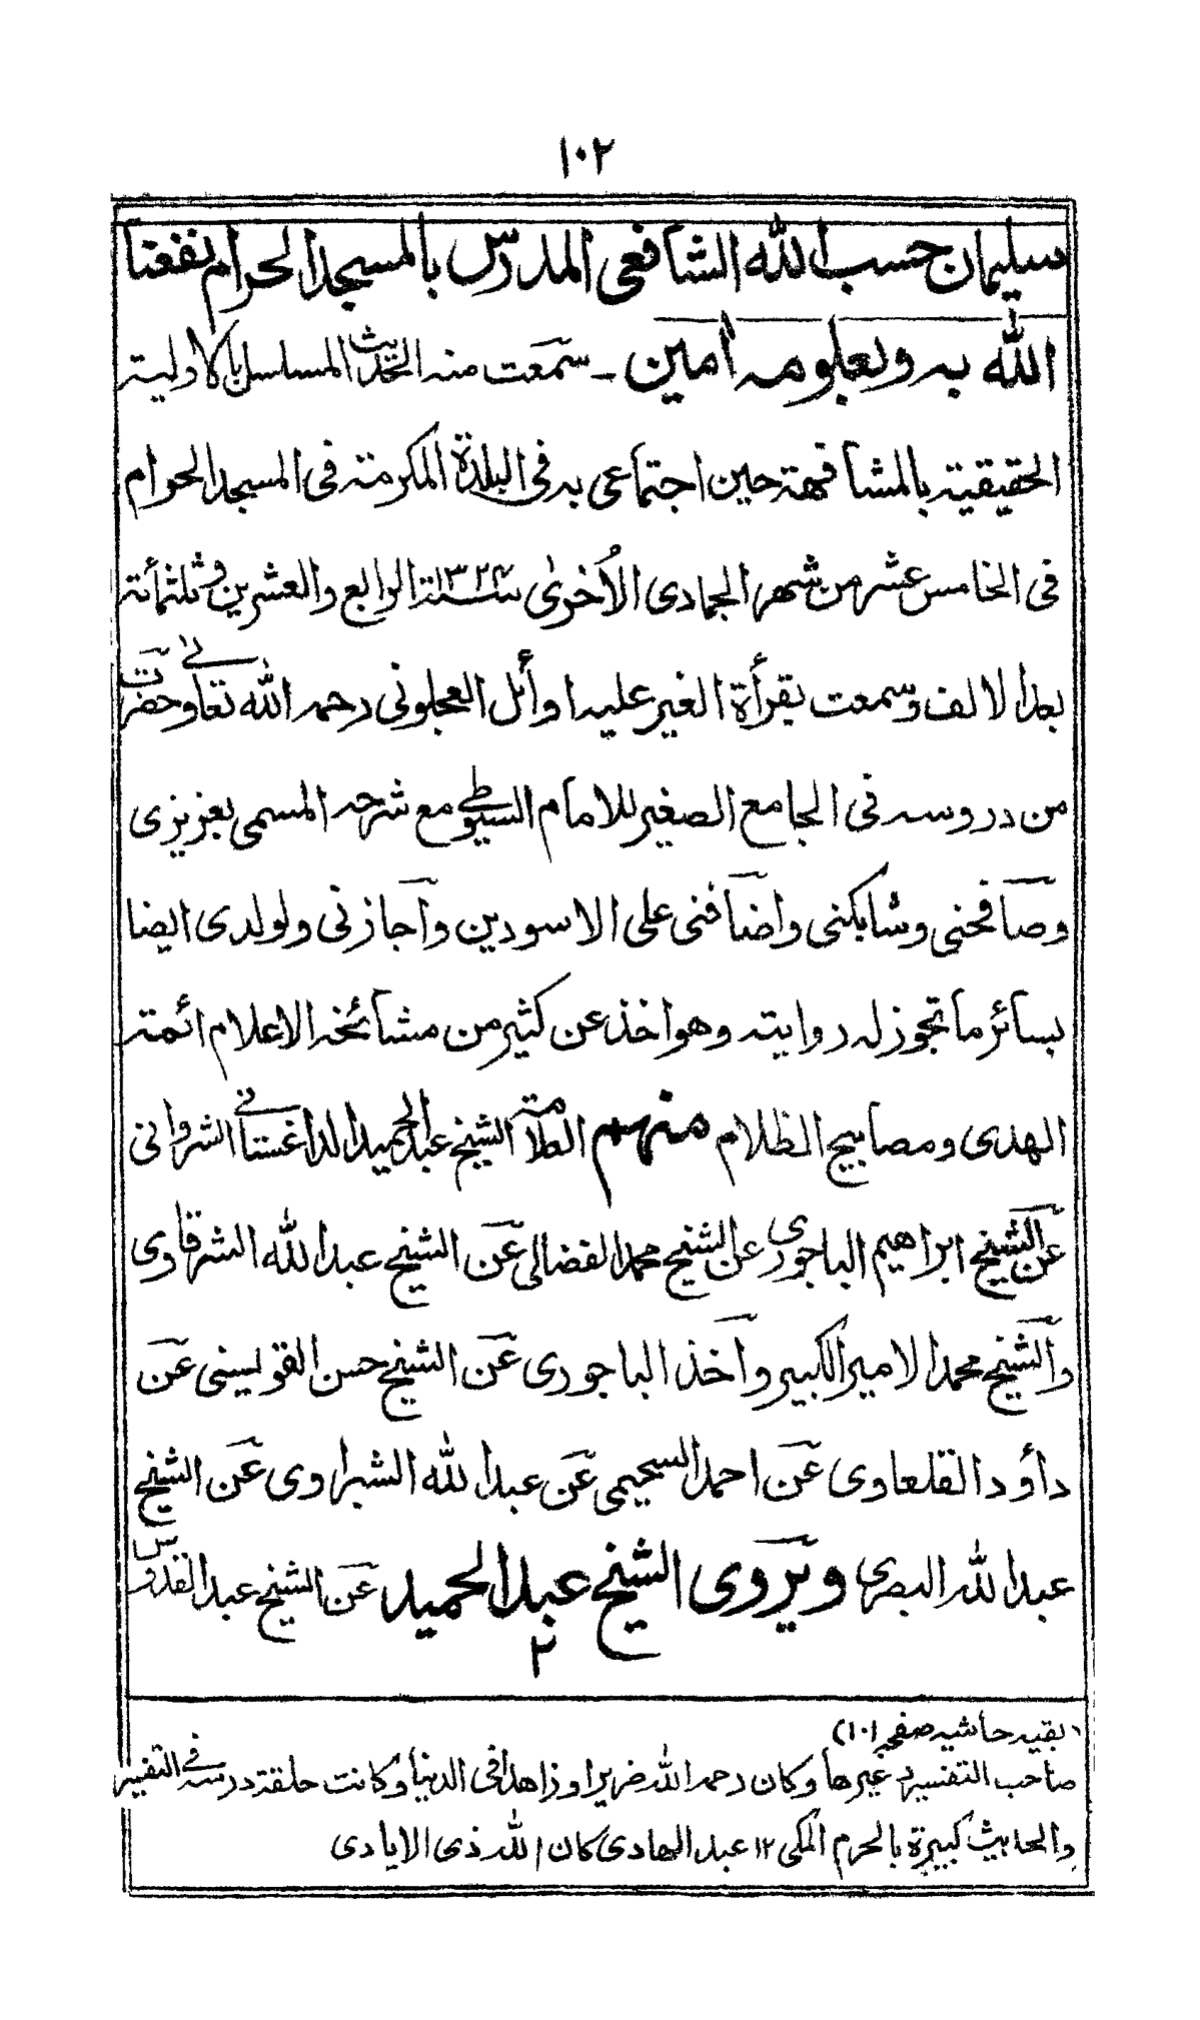 ١٠٢
سليمان حسب الله الشافعي المدرس بالمسجد الحرام نفعنا
الله به وبعلومه اٰمين ـ سمعت منه الحديث المسلسل بالاولية
الحقيقية بالمشافهة حين اجتماعي به في البلدة المكرمة في المسجد الحرام
في الخامس عشر من شهر الجمادى الاُخرىٰ سنة ١٣٢٤ الرابع والعشرين وثلثمائة
بعد الالف وسمعت بقرأة الغير عليه اوأئل العجلوني رحمه الله تعالى وحضرت
من دروسه في الجامع الصغير للامام السيوطي مع شرحه المسمى بعزيزى
وصافحني وشابكني واضافني على الاسودين واجازني ولولدى ايضا
بسائر ما تجوز له روايته وهو اخذ عن كثير من مشائخه الاعلام ائمة
الهدى ومصابيح الظلام منهم العلامة الشيخ عبد الحميد الداغستاني الشرواني
عن الشيخ ابراهيم الباجورى عن الشيخ محمد الفضالى عن الشيخ عبد الله الشرقاوى
والشيخ محمد الامير الكبير واخذ الباجورى عن الشيخ حسن القويسنى عن
دأود القلعاوى عن احمد السحيمى عن عبد الله الشبراوى عن الشيخ
عبد الله البصرى ويروى الشيخ عبد الحميد عن الشيخ عبد القدوس
٢
بقيه حاشيه صفحه (١٠١)
صاحب التفسير وغيرها وكان رحمه الله ضريرا وزاهدا في الدنيا وكانت حلقة درسه في التفسير
والحديث كبيرة بالحرم المكى ١٢ عبد الهادى كان الله ذى الايادى